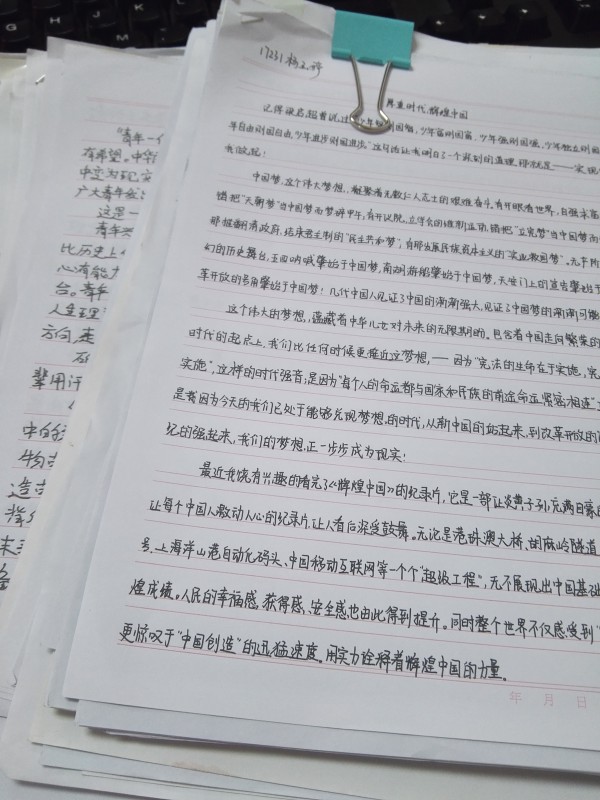 17231
时代,辉煌中国
年自由则国自由,少年进步则国进步"这句话让我明白了一个深刻的道理
中国梦,这个伟大梦想,凝聚着无数仁人志士的艰难奋斗。有开眼看世界
错把"天朝梦"当中国梦而梦碎甲午,有开议院、立学会的维新运动,错把"立宪梦"当中国梦而
那推翻清政府,结束君主制的"民主共和梦";有那发展民族资本主义的"实业救国梦"。无
幻的历史舞台,五四呐喊肇始于中国梦,南湖游船肇始于中国梦,天安门上的宣告肇始于
革开放的号角肇始于中国梦!几代中国人见证了中国的渐渐强大,见证了中国梦的渐渐可能
这个伟大的梦想,蕴藏着中华儿女对未来的无限期盼。包含着中国走向繁荣的
时代的起点上,我们比任何时候更接近这梦想,——因为"宪法的生命在于实施,宪
实施",这样的时代强音;是因为"每个人的命运都与国家和民族的前途命运紧密相连"
是我因为今天的我们已处于能够兑现梦想的时代,从新中国的站起来,到改革开放的
纪的强起来,我们的梦想,正一步步成为现实!
最近我饶有兴趣的看完了《辉煌中国》的纪录片,它是一部让炎黄子孙充满自豪
让每个中国人激动人心的纪录片,让人看后深受鼓舞。无论是港珠澳大桥、胡麻岭隧道
号、上海洋山港自动化码头、中国移动互联网等一个个"超级工程",无不展现出中国基础
煌成绩。人民的幸福感、获得感、安全感也由此得到提升。同时整个世界不仅感受到"
更惊叹于"中国创造"的迅猛速度。用实力诠释着辉煌中国的力量。
年 月 日
"青年一
有希望。中华
广大青年
这是一
青年兴
比历史上
心有能力
台。青年
人生理
方向,走
辈用汗
中的
物
造